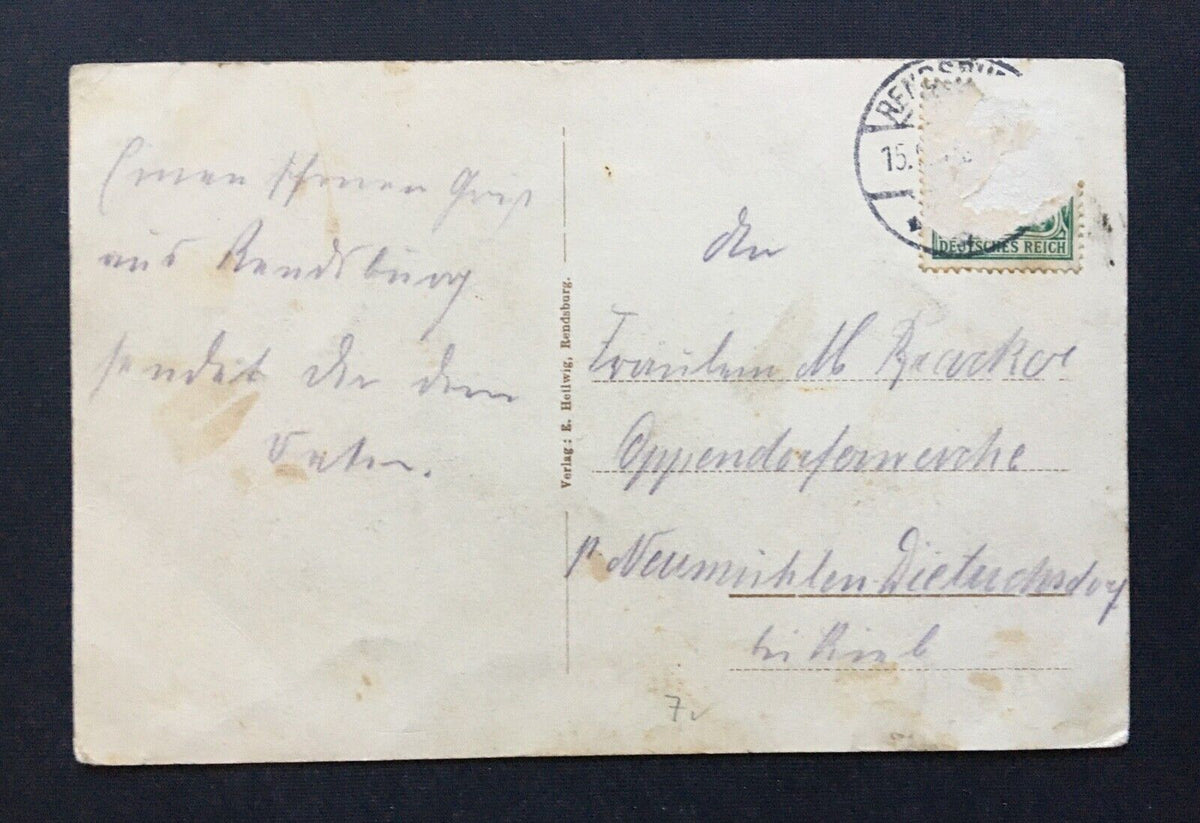 Einen schönen Gruß
aus Rendsburg
sendet dir dein
Vater.
Verlag: E. Heilwig, Rendsburg.
RENDSBU
15.
DEUTSCHES REICH
An
Fräulein M
Oppendorfer
p Neumühlen-Dietrichsdorf
bei Kiel
7